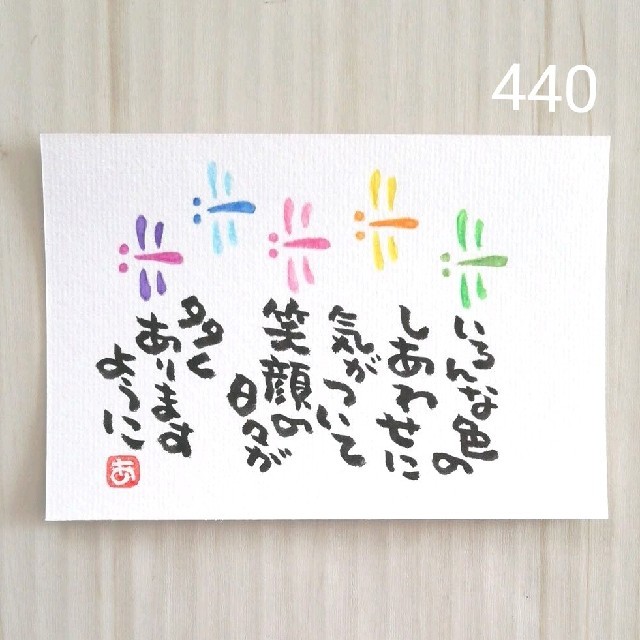 440
いろんな色の
しあわせに
気がついて
笑顔の
日々が
多く
あります
ように
あ